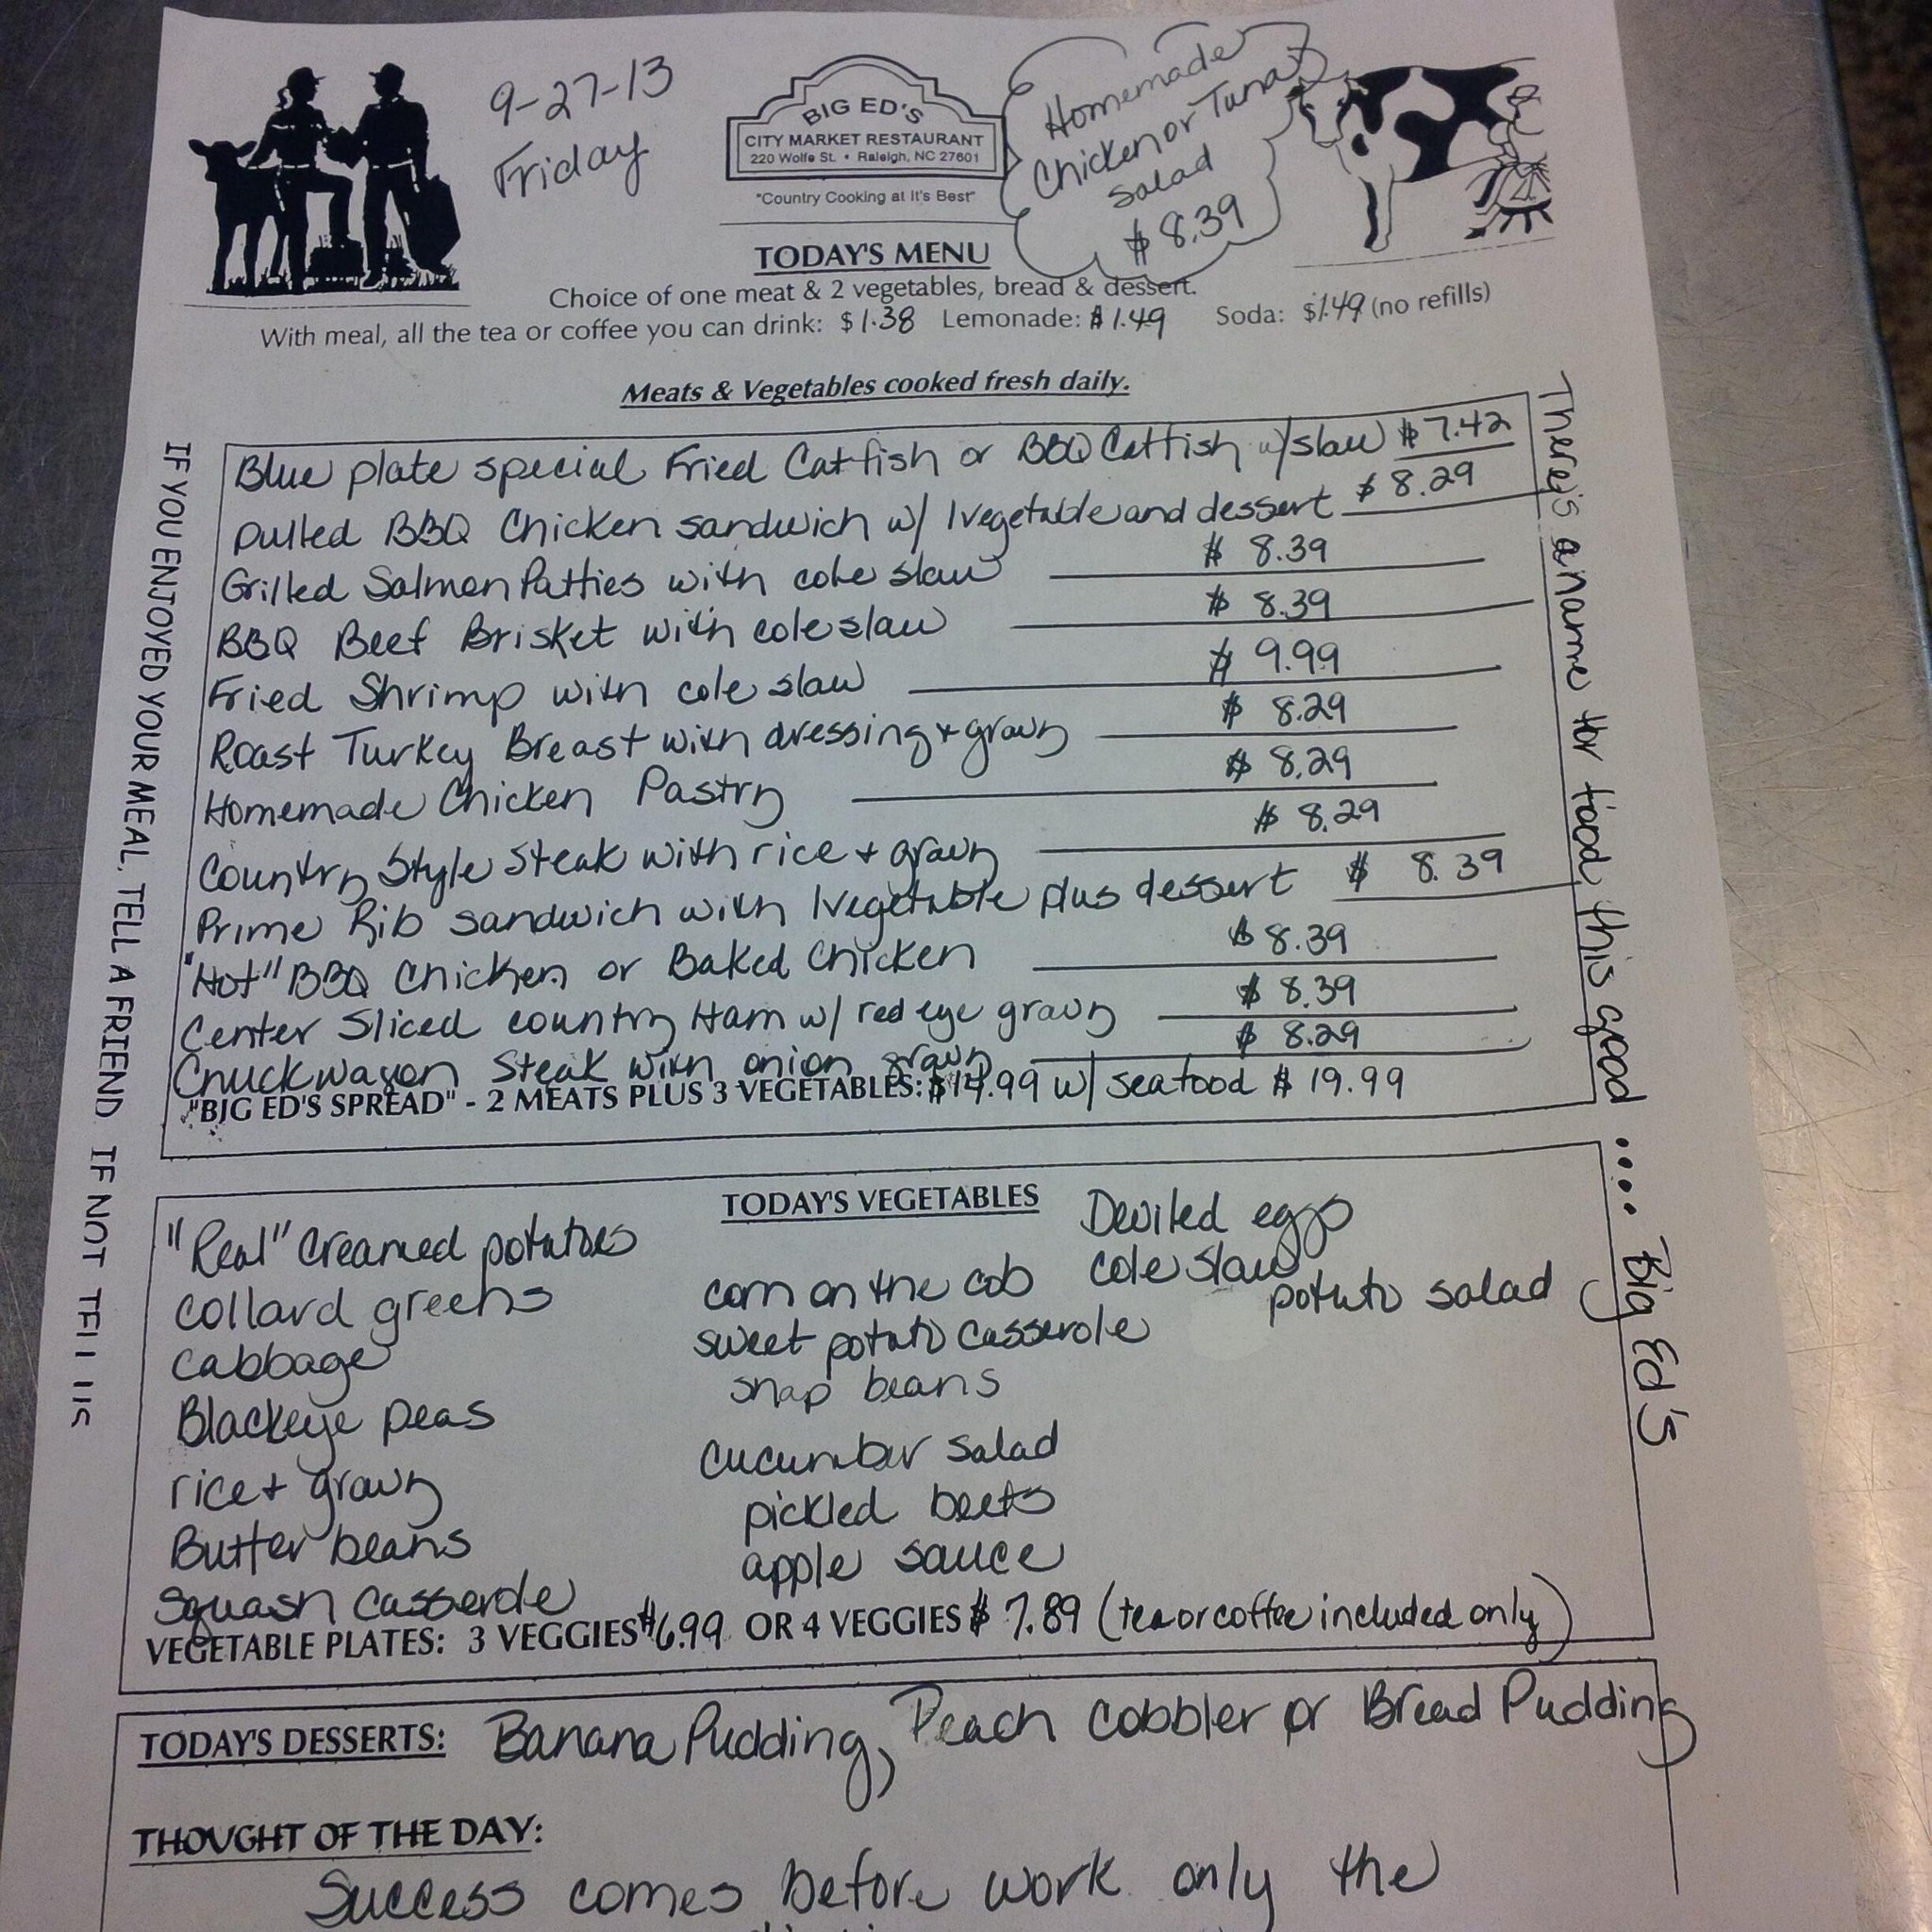 9-27-13
Friday
BIG ED'S
CITY MARKET RESTAURANT
220 Wolfe St. • Raleigh, NC 27601
"Country Cooking at It's Best"
Homemade
Chicken or Tuna
Salad
$8.39
TODAY'S MENU
Choice of one meat & 2 vegetables, bread & dessert.
With meal, all the tea or coffee you can drink: $1.38 Lemonade: $1.49 Soda: $1.49 (no refills)
Meats & Vegetables cooked fresh daily.
Blue plate special Fried Catfish or BBQ Catfish w/slaw $7.42
Pulled BBQ Chicken sandwich w/ 1vegetable and dessert $8.29
Grilled Salmon Patties with cole slaw $8.39
BBQ Beef Brisket with coleslaw $8.39
Fried Shrimp with cole slaw $9.99
Roast Turkey Breast with dressing + gravy $8.29
Homemade Chicken Pastry $8.29
Country Style Steak with rice + gravy $8.29
Prime Rib sandwich with 1vegetable plus dessert $8.39
"Hot" BBQ Chicken or Baked Chicken $8.39
Center Sliced country Ham w/ red eye gravy $8.39
Chuckwagon Steak with onion gravy $8.29
"BIG ED'S SPREAD" - 2 MEATS PLUS 3 VEGETABLES: $14.99 w/ seafood $19.99
IF YOU ENJOYED YOUR MEAL, TELL A FRIEND IF NOT TELL US
There's a name for food this good .... Big Ed's
TODAY'S VEGETABLES
"Real" Creamed potatoes
collard greens
cabbage
Blackeye peas
rice + gravy
Butter beans
Squash casserole
corn on the cob
sweet potato casserole
snap beans
cucumber salad
pickled beets
apple sauce
Deviled eggs
cole slaw
potato salad
VEGETABLE PLATES: 3 VEGGIES $6.99 OR 4 VEGGIES $7.89 (tea or coffee included only)
TODAY'S DESSERTS: Banana Pudding, Peach Cobbler or Bread Pudding
THOUGHT OF THE DAY:
Success comes before work only the